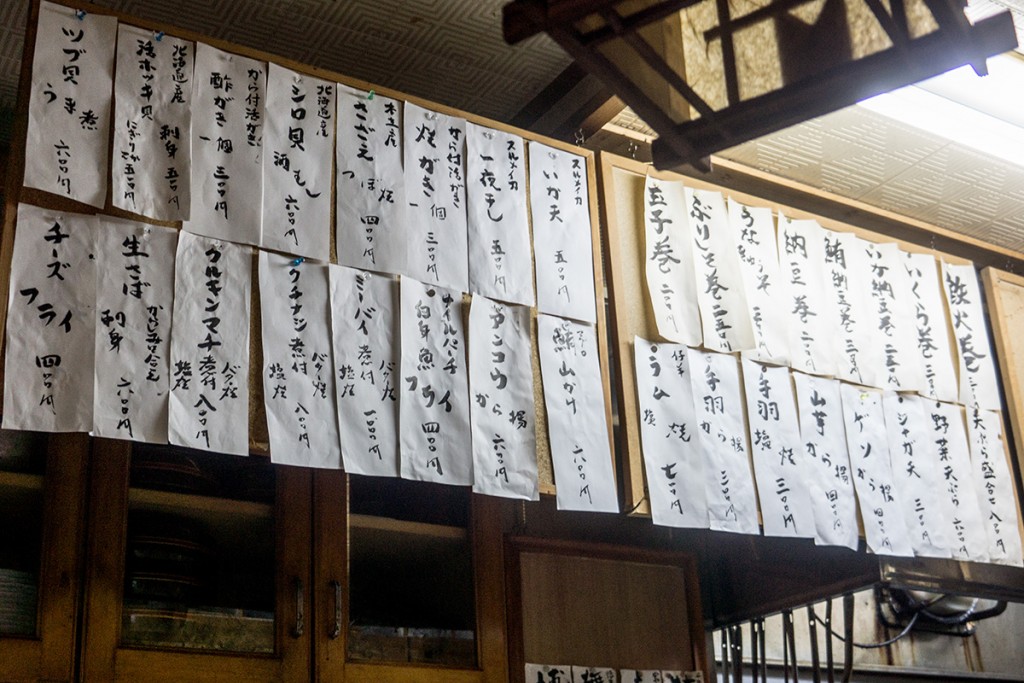 ツブ貝
うま煮
六〇〇円
北海道産
活ホッキ貝
刺身 五〇〇円
にぎり 五〇〇円
から付活がき
酢がき
一個 三〇〇円
北海道産
シロ貝
酒むし
六〇〇円
さざえ
つぼ焼
四〇〇円
から付活がき
焼がき
一個 三〇〇円
スルメイカ
一夜干し
五〇〇円
スルメイカ
いか天
五〇〇円
チーズ
フライ
四〇〇円
生さば
刺身
からし酢みそ和え
六〇〇円
グルキンマチ
煮付
バター焼
塩焼
八〇〇円
クチナシ
煮付
バター焼
塩焼
八〇〇円
ミーバイ
煮付
バター焼
塩焼
一〇〇〇円
ナイルパーチ
白身魚
フライ
四〇〇円
アンコウ
から揚
六〇〇円
山かけ
六〇〇円
玉子巻
二〇〇円
ぶりしそ巻
二五〇円
納豆巻
二〇〇円
鮪納豆巻
いか納豆巻
いくら巻
三〇〇円
鉄火巻
仔羊
ラム
塩焼
七〇〇円
手羽
から揚
三〇〇円
手羽
塩焼
三〇〇円
山芋
から揚
四〇〇円
ゲソ
から揚
四〇〇円
ジャガ天
三〇〇円
野菜天ぷら
六〇〇円
天ぷら盛合せ
八〇〇円